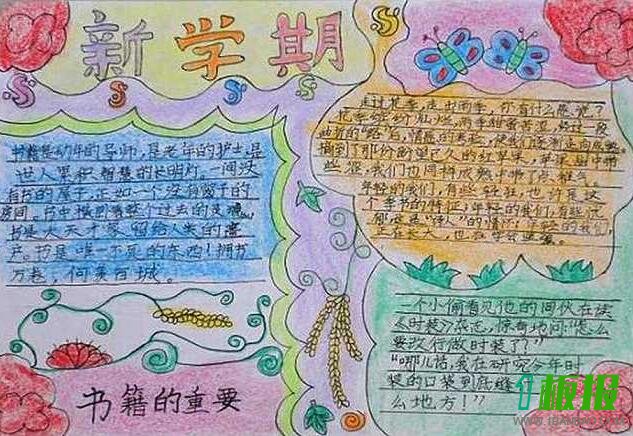 新学期
书籍是幼年的导师,是老年的护士,是
世人累积智慧的长明灯。一间没
有书的屋子,正如一个没有窗子的
房间。书中横卧着整个过去的灵魂。
书是天才留给人类的遗
产。书是唯一不死的东西!拥书
万卷,何卖百城。
书籍的重要
走过花季,走出雨季,你有什么感觉?
摘到了那份盼望已久的红苹果,苹果甜中带
些涩,我们也同样成熟中带了点稚气。
年轻的我们,有些轻狂,也许是这
个季节的特征;年轻的我们,有些忧
正在长大,也在学会坚强。
一个小偷看见他的同伙在读
《时装》杂志,惊奇地问:“怎么
要改行做时装了?”
“哪儿话,我在研究今年时
装的口袋到底缝
么地方!”
板报